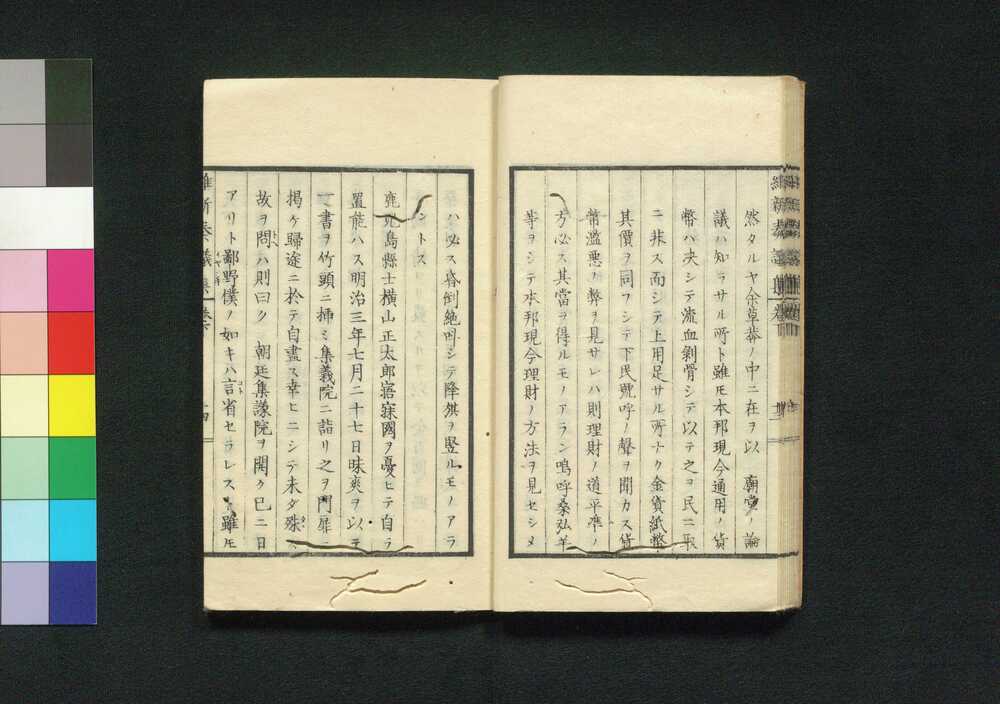 然タルヤ余草莽ノ中ニ在ヲ以 廟堂ノ論
議ハ知ラサル所ト雖モ本邦現今通用ノ貨
幣ハ決シテ流血剝骨シテ以テ之ヲ民ニ取
ニ非ス而シテ上用足サル所ナク金貨紙幣
其價ヲ同フシテ下民號呼ノ聲ヲ聞カス貨
幣濫惡ノ弊ヲ見サレハ則理財ノ道平準ノ
方必ス其當ヲ得ルモノアラン嗚呼桑弘羊
等ヲシテ本邦現今理財ノ方法ヲ見セシメ
ハ必ス昏倒絶叫シテ降旗ヲ竪ルモノアラ
ントス
鹿兒島縣士横山正太郎寤寐國ヲ憂ヒテ自ラ
置能ハス明治三年七月二十七日昧爽ヲ以テ
書ヲ竹頭ニ挿ミ集義院ニ詣リ之ヲ門扉ニ
掲ケ歸途ニ於テ自盡ス幸ヒニシテ未タ殊
故ヲ問ハ則曰ク 朝廷集議院ヲ開ク已ニ日
アリト鄙野僕ノ如キハ言省セラレス雖モ
維新奏議集 卷